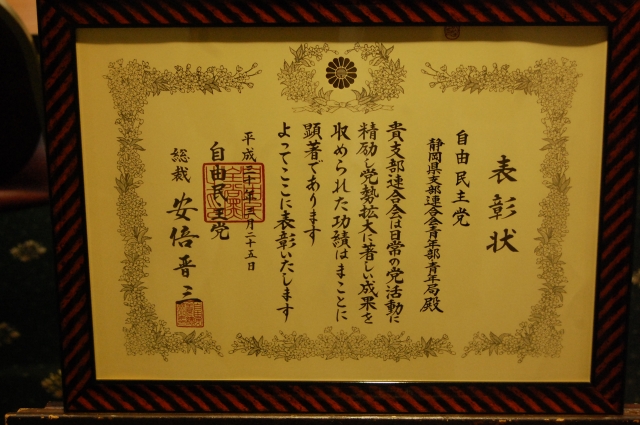 表彰状
自由民主党
静岡県支部連合会青年部青年局殿
貴支部連合会は日常の党活動に
精励し党勢拡大に著しい成果を
収められた功績はまことに
顕著であります
よってここに表彰いたします
平成二十五年三月二十五日
自由民主党
総裁 安倍晋三